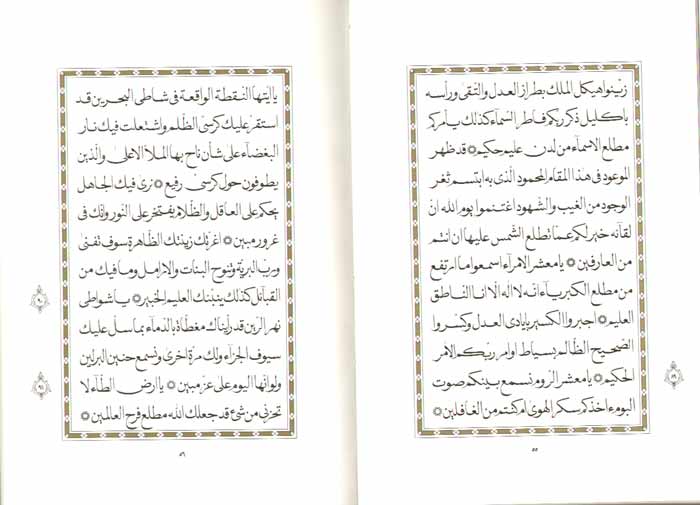 زيّنوا هيكل الملك بطراز العدل والتّقى ورأسه
باكليل ذكر ربّكم فاطر السّمآء كذلك يأمركم
مطلع الاسمآء من لدن عليم حكيم ۞ قد ظهر
الموعود فى هذا المقام المحمود الّذى به ابتسم ثغر
الوجود من الغيب والشّهود اغتنموا يوم الله انّ
لقآئه خير لكم عمّا تطلع الشّمس عليها ان انتم
من العارفين ۞ يا معشر الامرآء اسمعوا ما ارتفع
من مطلع الكبريآء انّه لا اله الّا انا النّاطق
العليم ۞ اجبروا الكسير بايادى العدل وكسّروا
الصّحيح الظّالم بسياط اوامر ربّكم الآمر
الحكيم ۞ يا معشر الرّوم نسمع بينكم صوت
البوم ءاخذكم سكر الهوى ام كنتم من الغافلين ۞
٨٩
٥٥
يا ايّتها النّقطة الواقعة فى شاطى البحرين قد
استقرّ عليك كرسىّ الظّلم واشتعلت فيك نار
البغضآء على شأن ناح بها الملأ الاعلى والّذين
يطوفون حول كرسىّ رفيع ۞ نرى فيك الجاهل
يحكم على العاقل والظّلام يفتخر على النّور وانّك فى
غرور مبين ۞ اغرّتك زينتك الظّاهرة سوف تفنى
وربّ البريّة وتنوح البنات والارامل وما فيك من
القبآئل كذلك ينبّئك العليم الخبير ۞ يا شواطى
نهر الرّين قد رأيناك مغطّاة بالدّمآء بما سلّ عليك
سيوف الجزآء ولك مرّة اخرى ونسمع حنين البرلين
ولو انّها اليوم على عزّ مبين ۞ يا ارض الطّآء لا
تحزنى من شىء قد جعلك الله مطلع فرح العالمين ۞
٩٠
٩١
٥٦